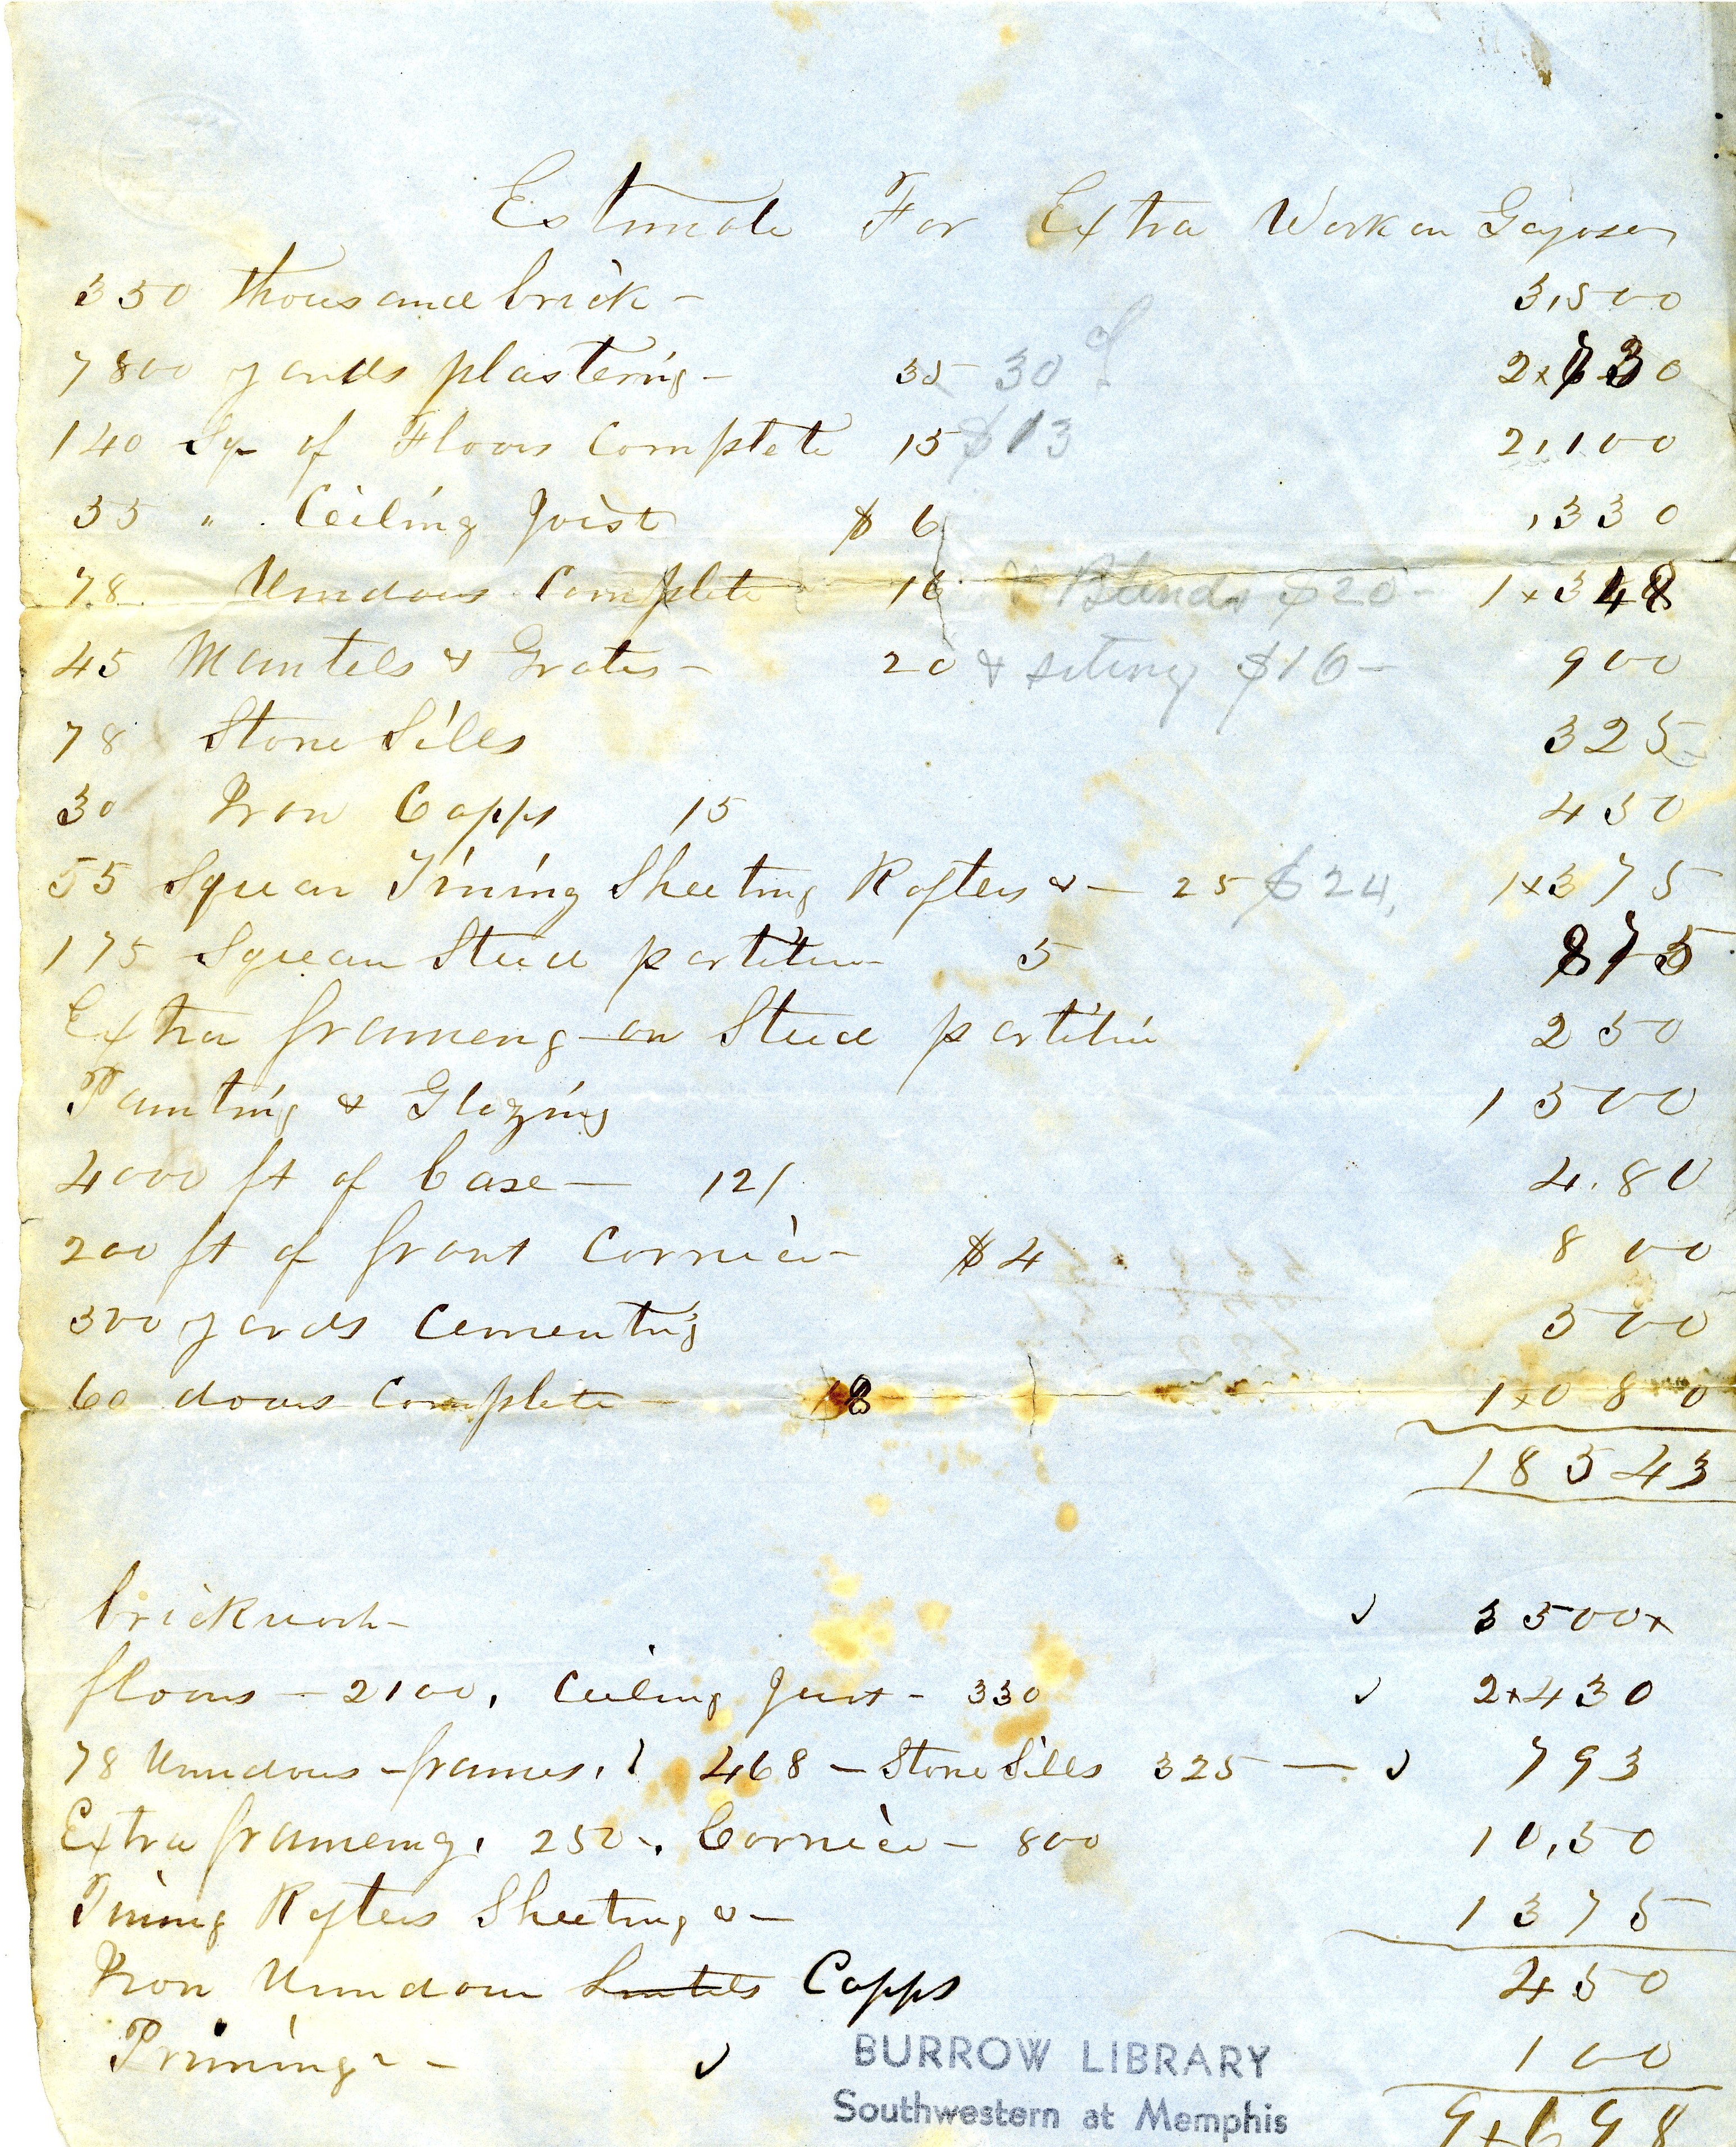 Estimate For Extra Work on Gayoso
350 thousand brick - 3,500
7800 yards plastering - 35 30 2x730
140 Sqr of Floors Complete 15 $13 2,100
55 " Ceiling Joist $ 6 ,330
78 Windows Complete 16 & Blinds $20- 1x348
45 Mantels & Grates - 20 & seting $16- 900
78 Stone Sills 325
30 Iron Capps 15 450
55 Squear Tining Sheeting Rafters & - 25 $24, 1x375
175 Squear Stud partition 5 875
Extra frameng on Stud partition 250
Painting & Glazing 1500
4000 ft of base - 12/ 4.80
200 ft of front Cornice - $4 800
300 yards Cementing 300
60 doors Complete - 18 1x080
18543
brickwork - ✓ 3500x
floors - 2100, Ceiling Joist - 330 ✓ 2x430
78 Windows frames, 468 - Stone Sills 325 - ✓ 793
Extra frameing, 250, Cornice - 800 10,50
Tining Rafters Sheeting & - 1375
Iron Window Lintels Capps 450
Priming - ✓ 100
9x698
BURROW LIBRARY
Southwestern at Memphis